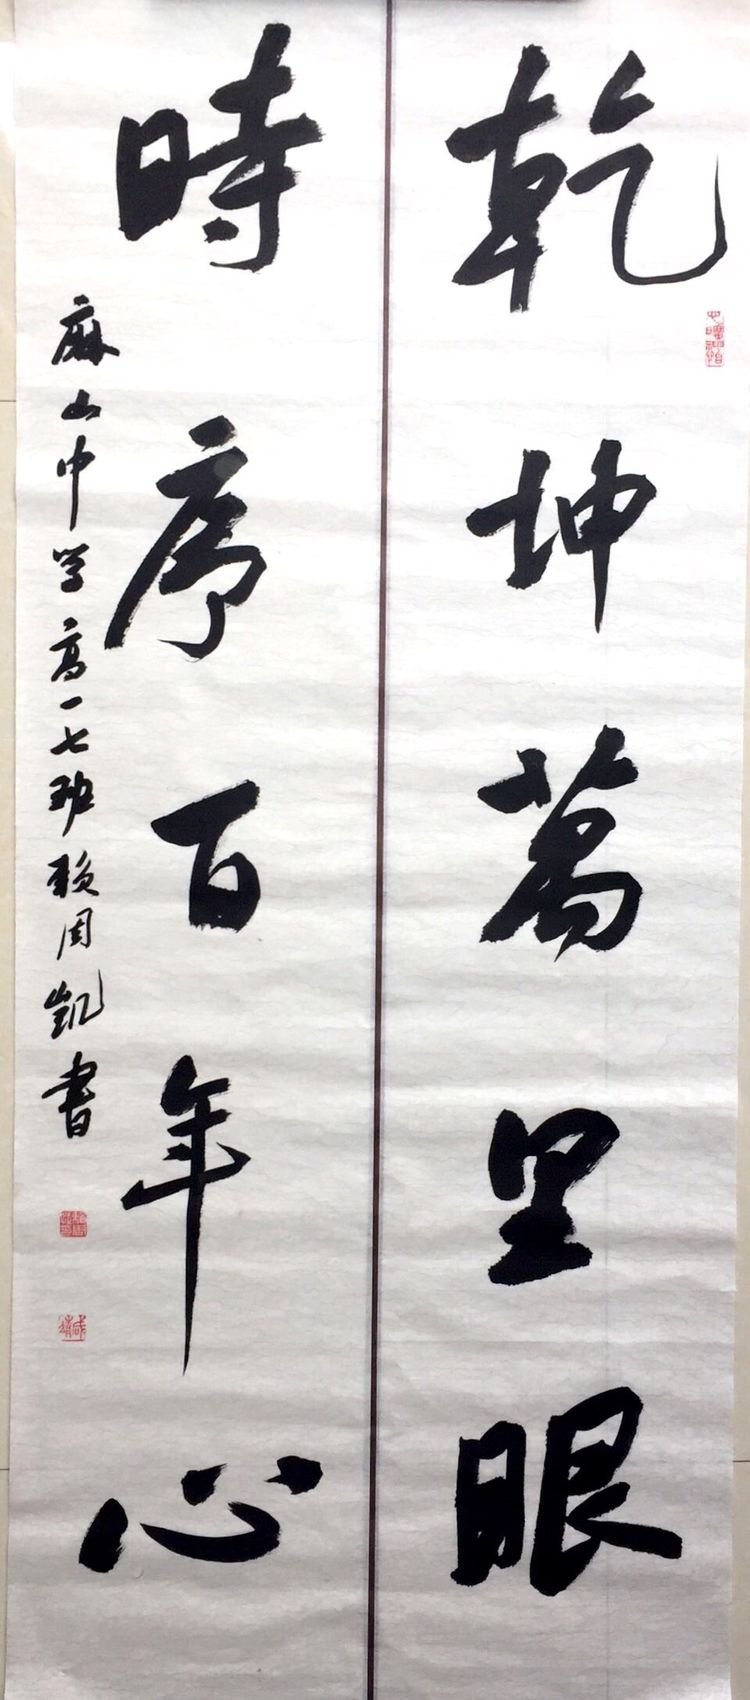 乾坤萬里眼
時序百年心
麻山中学高一七班赖周凯書